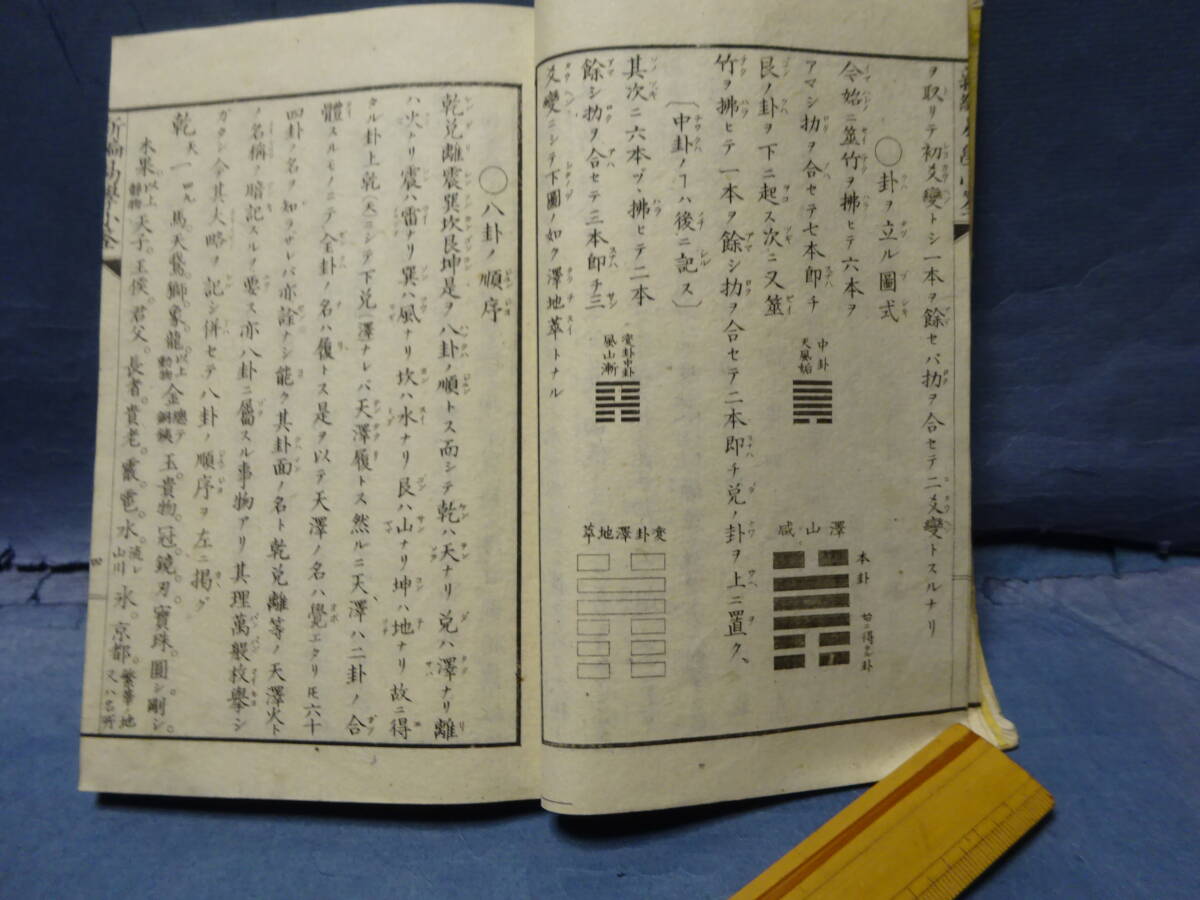 ヲ取リテ初爻變トシ一本ヲ餘セバ扐ヲ合セテ二爻變トスルナリ
〇卦ヲ立ル圖式
今始ニ筮竹ヲ拂ヒテ六本ヲ
アマシ扐ヲ合セテ七本即チ
艮ノ卦ヲ下ニ起ス次ニ又筮
竹ヲ拂ヒテ一本ヲ餘シ扐ヲ合セテ二本即チ兌ノ卦ヲ上ニ置ク、
〔中卦ノヿハ後ニ記ス〕
其次ニ六本ヅヽ拂ヒテ二本
餘シ扐ヲ合セテ三本即チ三
爻變ニシテ下圖ノ如ク澤地萃トナル
中卦
天風姤
變卦中卦
風山漸
澤山咸
本卦
始ニ得タル卦
變卦澤地萃
〇八卦ノ順序
乾兌離震巽坎艮坤是ヲ八卦ノ順トス而シテ乾ハ天ナリ兌ハ澤ナリ離
ハ火ナリ震ハ雷ナリ巽ハ風ナリ坎ハ水ナリ艮ハ山ナリ坤ハ地ナリ故ニ得
タル卦上乾(天)ニシテ下兌(澤ナレバ天澤履トス然ルニ天、澤ハ二卦ノ合
體スルモノニテ全卦ノ名ハ履トス是ヲ以テ天澤ノ名ハ覺エタリ𪜈六十
四卦ノ名ヲ知ラザレバ亦詮ナシ能ク其卦面ノ名ト乾兌離等ノ天澤火ト
ノ名稱ノ暗記スルヲ要ス亦八卦ニ屬スル事物アリ其理萬般枚擧シ
ガタシ今其大略ヲ記シ併セテ八卦ノ順序ヲ左ニ掲グ
乾 天 一 四九 馬。天鵞。獅。象。龍。以上動物 金 總テ銅鐵 玉。貴物。冠。鏡。刃。寶珠。圓シ。剛シ。
木果 以上靜物 天子。王侯。君父。長者。貴老。霰。雹。水。流レ山川 氷。京都。繁華ノ地又ハ名所